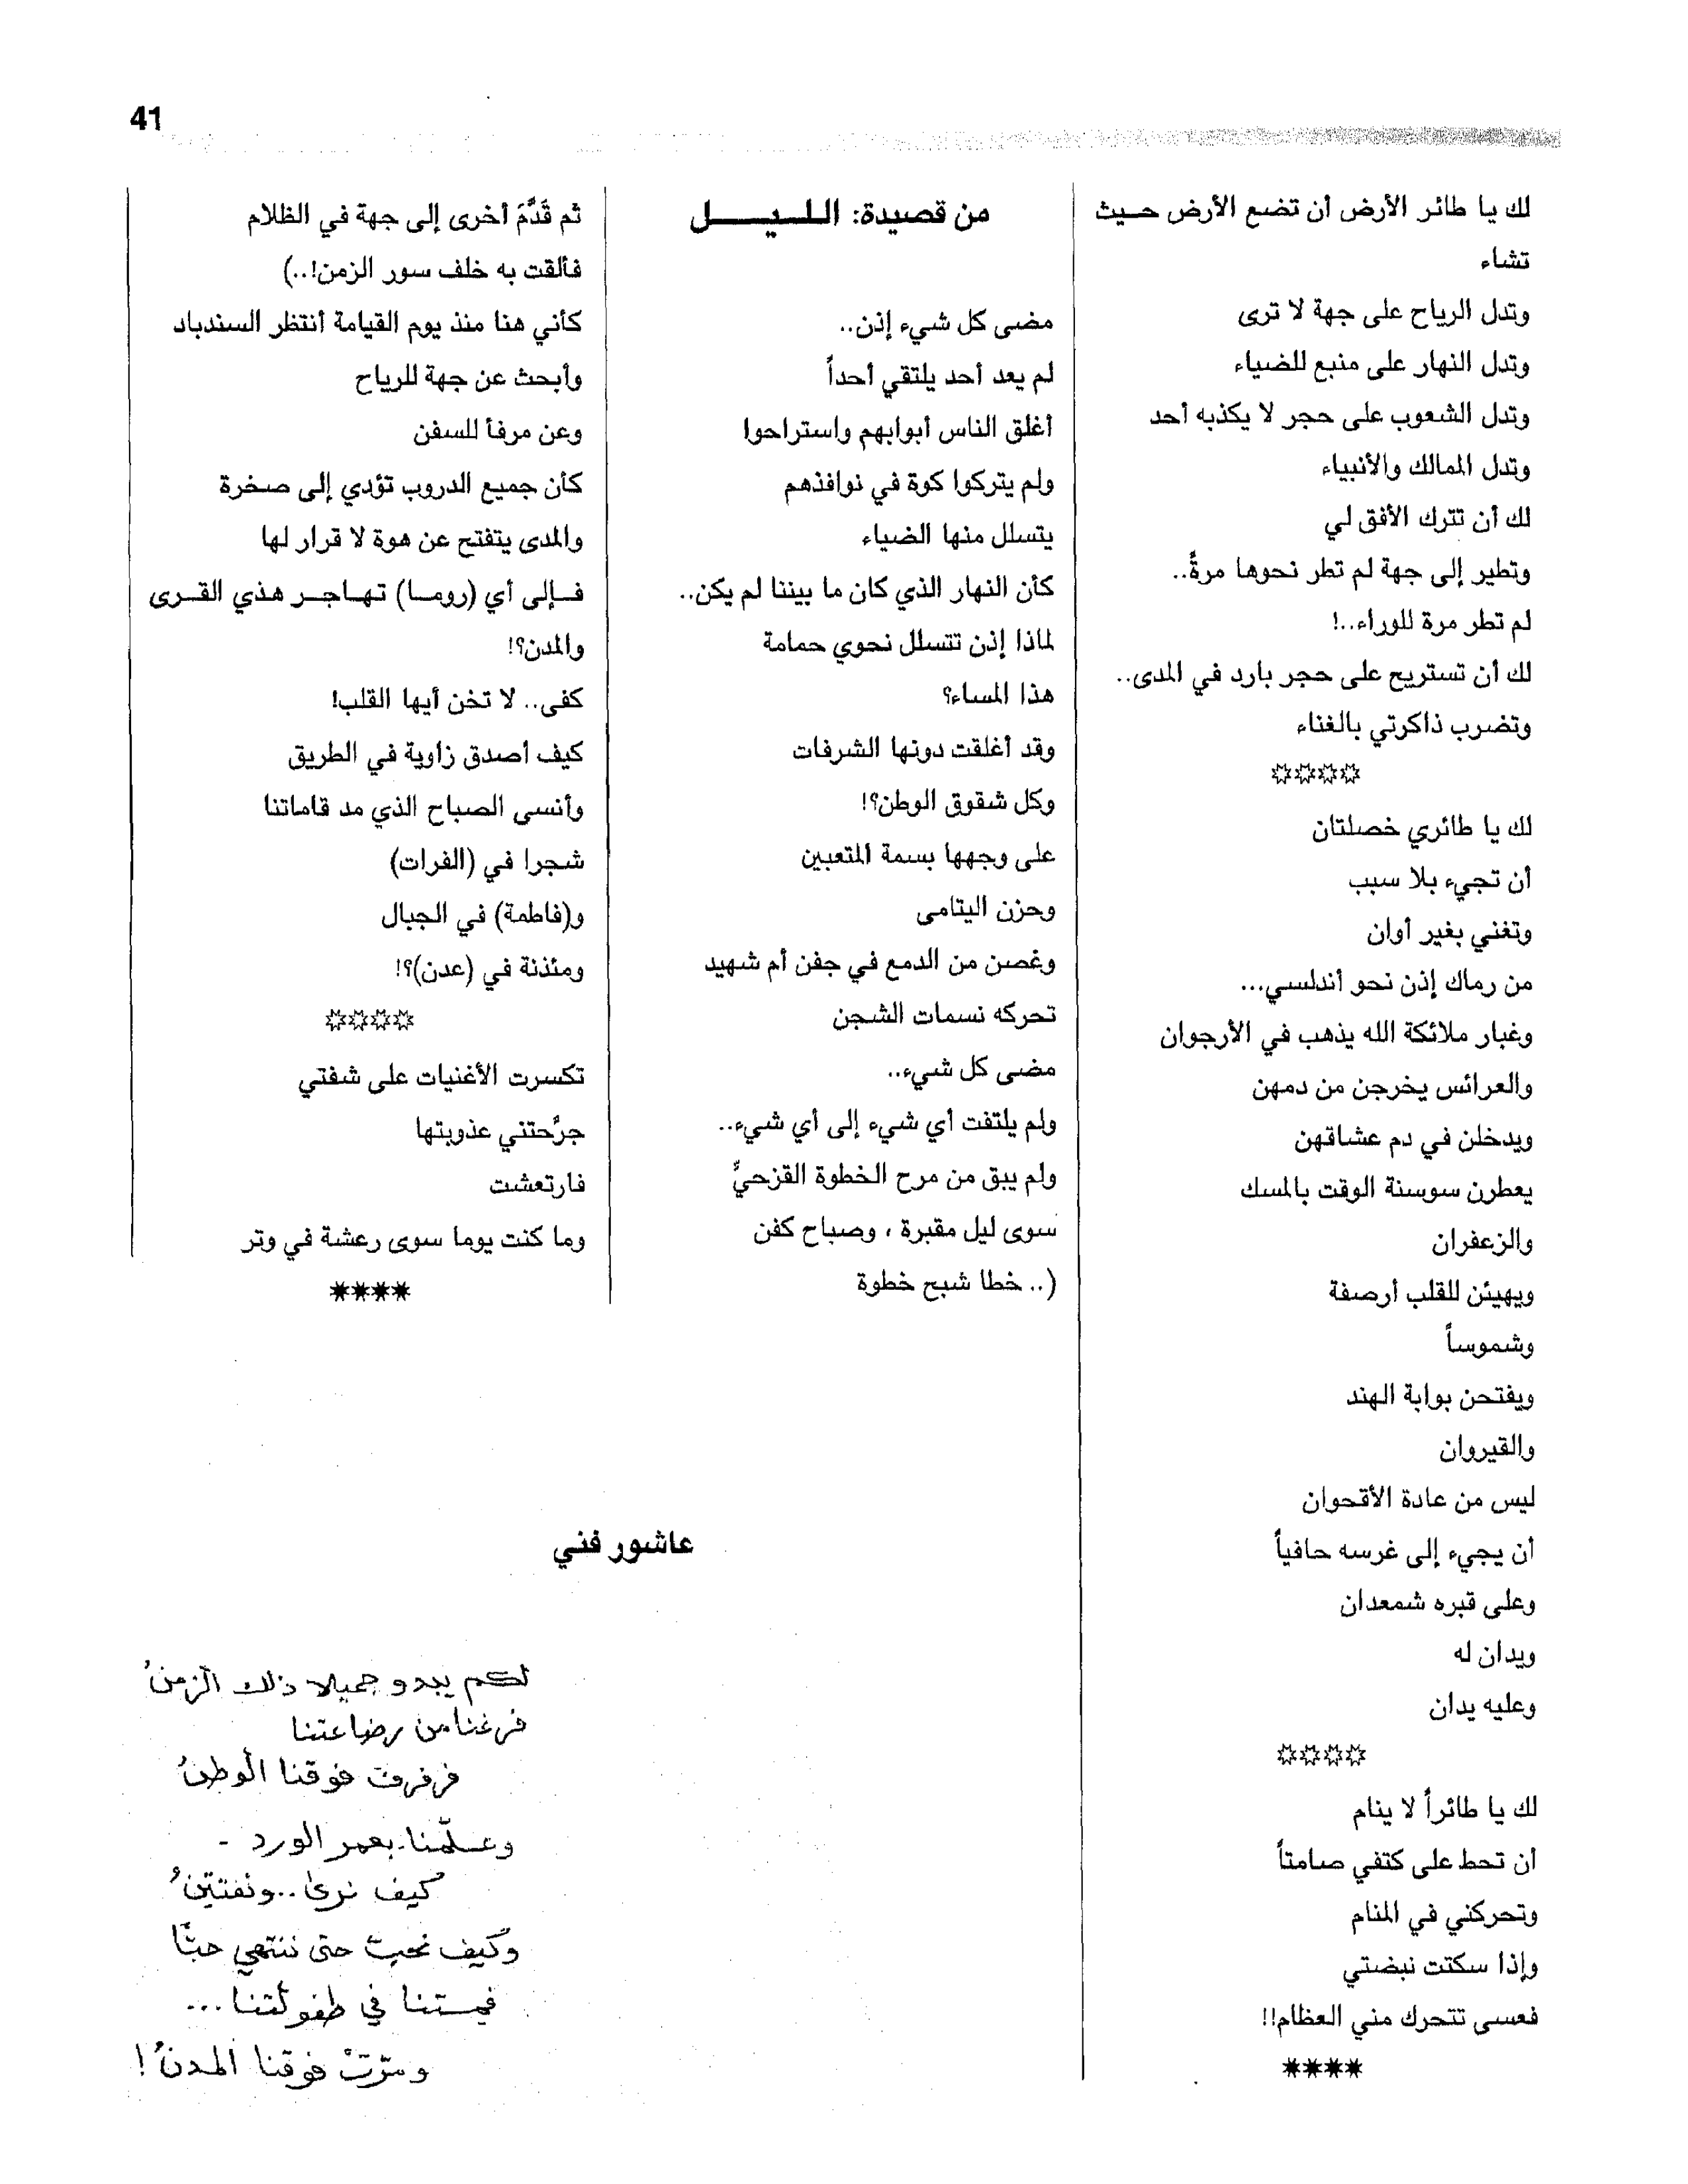 41
لك يا طائر الأرض أن تضع الأرض حيث
تشاء
وتدل الرياح على جهة لا ترى
وتدل النهار على منبع للضياء
وتدل الشعوب على حجر لا يكذبه أحد
وتدل الممالك والأنبياء
لك أن تترك الأفق لي
وتطير إلى جهة لم تطر نحوها مرةً..
لم تطر مرة للوراء..!
لك أن تستريح على حجر بارد في المدى..
وتضرب ذاكرتي بالغناء
☼☼☼☼
لك يا طائري خصلتان
أن تجيء بلا سبب
وتغني بغير أوان
من رماك إذن نحو أندلسي...
وغبار ملائكة الله يذهب في الأرجوان
والعرائس يخرجن من دمهن
ويدخلن في دم عشاقهن
يعطرن سوسنة الوقت بالمسك
والزعفران
ويهيئن للقلب أرصفة
وشموساً
ويفتحن بوابة الهند
والقيروان
ليس من عادة الأقحوان
أن يجيء إلى غرسه حافياً
وعلى قبره شمعدان
ويدان له
وعليه يدان
☼☼☼☼
لك يا طائراً لا ينام
أن تحط على كتفي صامتاً
وتحركني في المنام
وإذا سكتت نبضتي
فعسى تتحرك مني العظام!!
****
من قصيدة: الليل
مضى كل شيء إذن..
لم يعد أحد يلتقي أحداً
أغلق الناس أبوابهم واستراحوا
ولم يتركوا كوة في نوافذهم
يتسلل منها الضياء
كأن النهار الذي كان ما بيننا لم يكن..
لماذا إذن تتسلل نحوي حمامة
هذا المساء؟
وقد أغلقت دونها الشرفات
وكل شقوق الوطن؟!
على وجهها بسمة المتعبين
وحزن اليتامى
وغصن من الدمع في جفن أم شهيد
تحركه نسمات الشجن
مضى كل شيء..
ولم يلتفت أي شيء إلى أي شيء..
ولم يبق من مرح الخطوة القزحيِّ
سوى ليل مقبرة ، وصباح كفن
(.. خطا شبح خطوة
ثم قَدَّمَ أخرى إلى جهة في الظلام
فألقت به خلف سور الزمن!..)
كأني هنا منذ يوم القيامة أنتظر السندباد
وأبحث عن جهة للرياح
وعن مرفأ للسفن
كأن جميع الدروب تؤدي إلى صخرة
والمدى يتفتح عن هوة لا قرار لها
فإلى أي (روما) تهاجر هذي القرى
والمدن؟!
كفى.. لا تخن أيها القلب!
كيف أصدق زاوية في الطريق
وأنسى الصباح الذي مد قاماتنا
شجرا في (الفرات)
و(فاطمة) في الجبال
ومئذنة في (عدن)؟!
☼☼☼☼
تكسرت الأغنيات على شفتي
جرَّحتني عذوبتها
فارتعشت
وما كنت يوما سوى رعشة في وتر
****
عاشور فني
لكم يبدو جميلا ذلك الزمنُ
فرغنا من رضاعتنا
فرفرف فوقنا الوطنُ
وعلّمنا بعمر الورد -
كيف نرى.. ونفتتنُ
وكيف نحبّ حتى ننتهي حبّا
فمتنا في طفولتنا...
ومرّتْ فوقنا المدنُ!